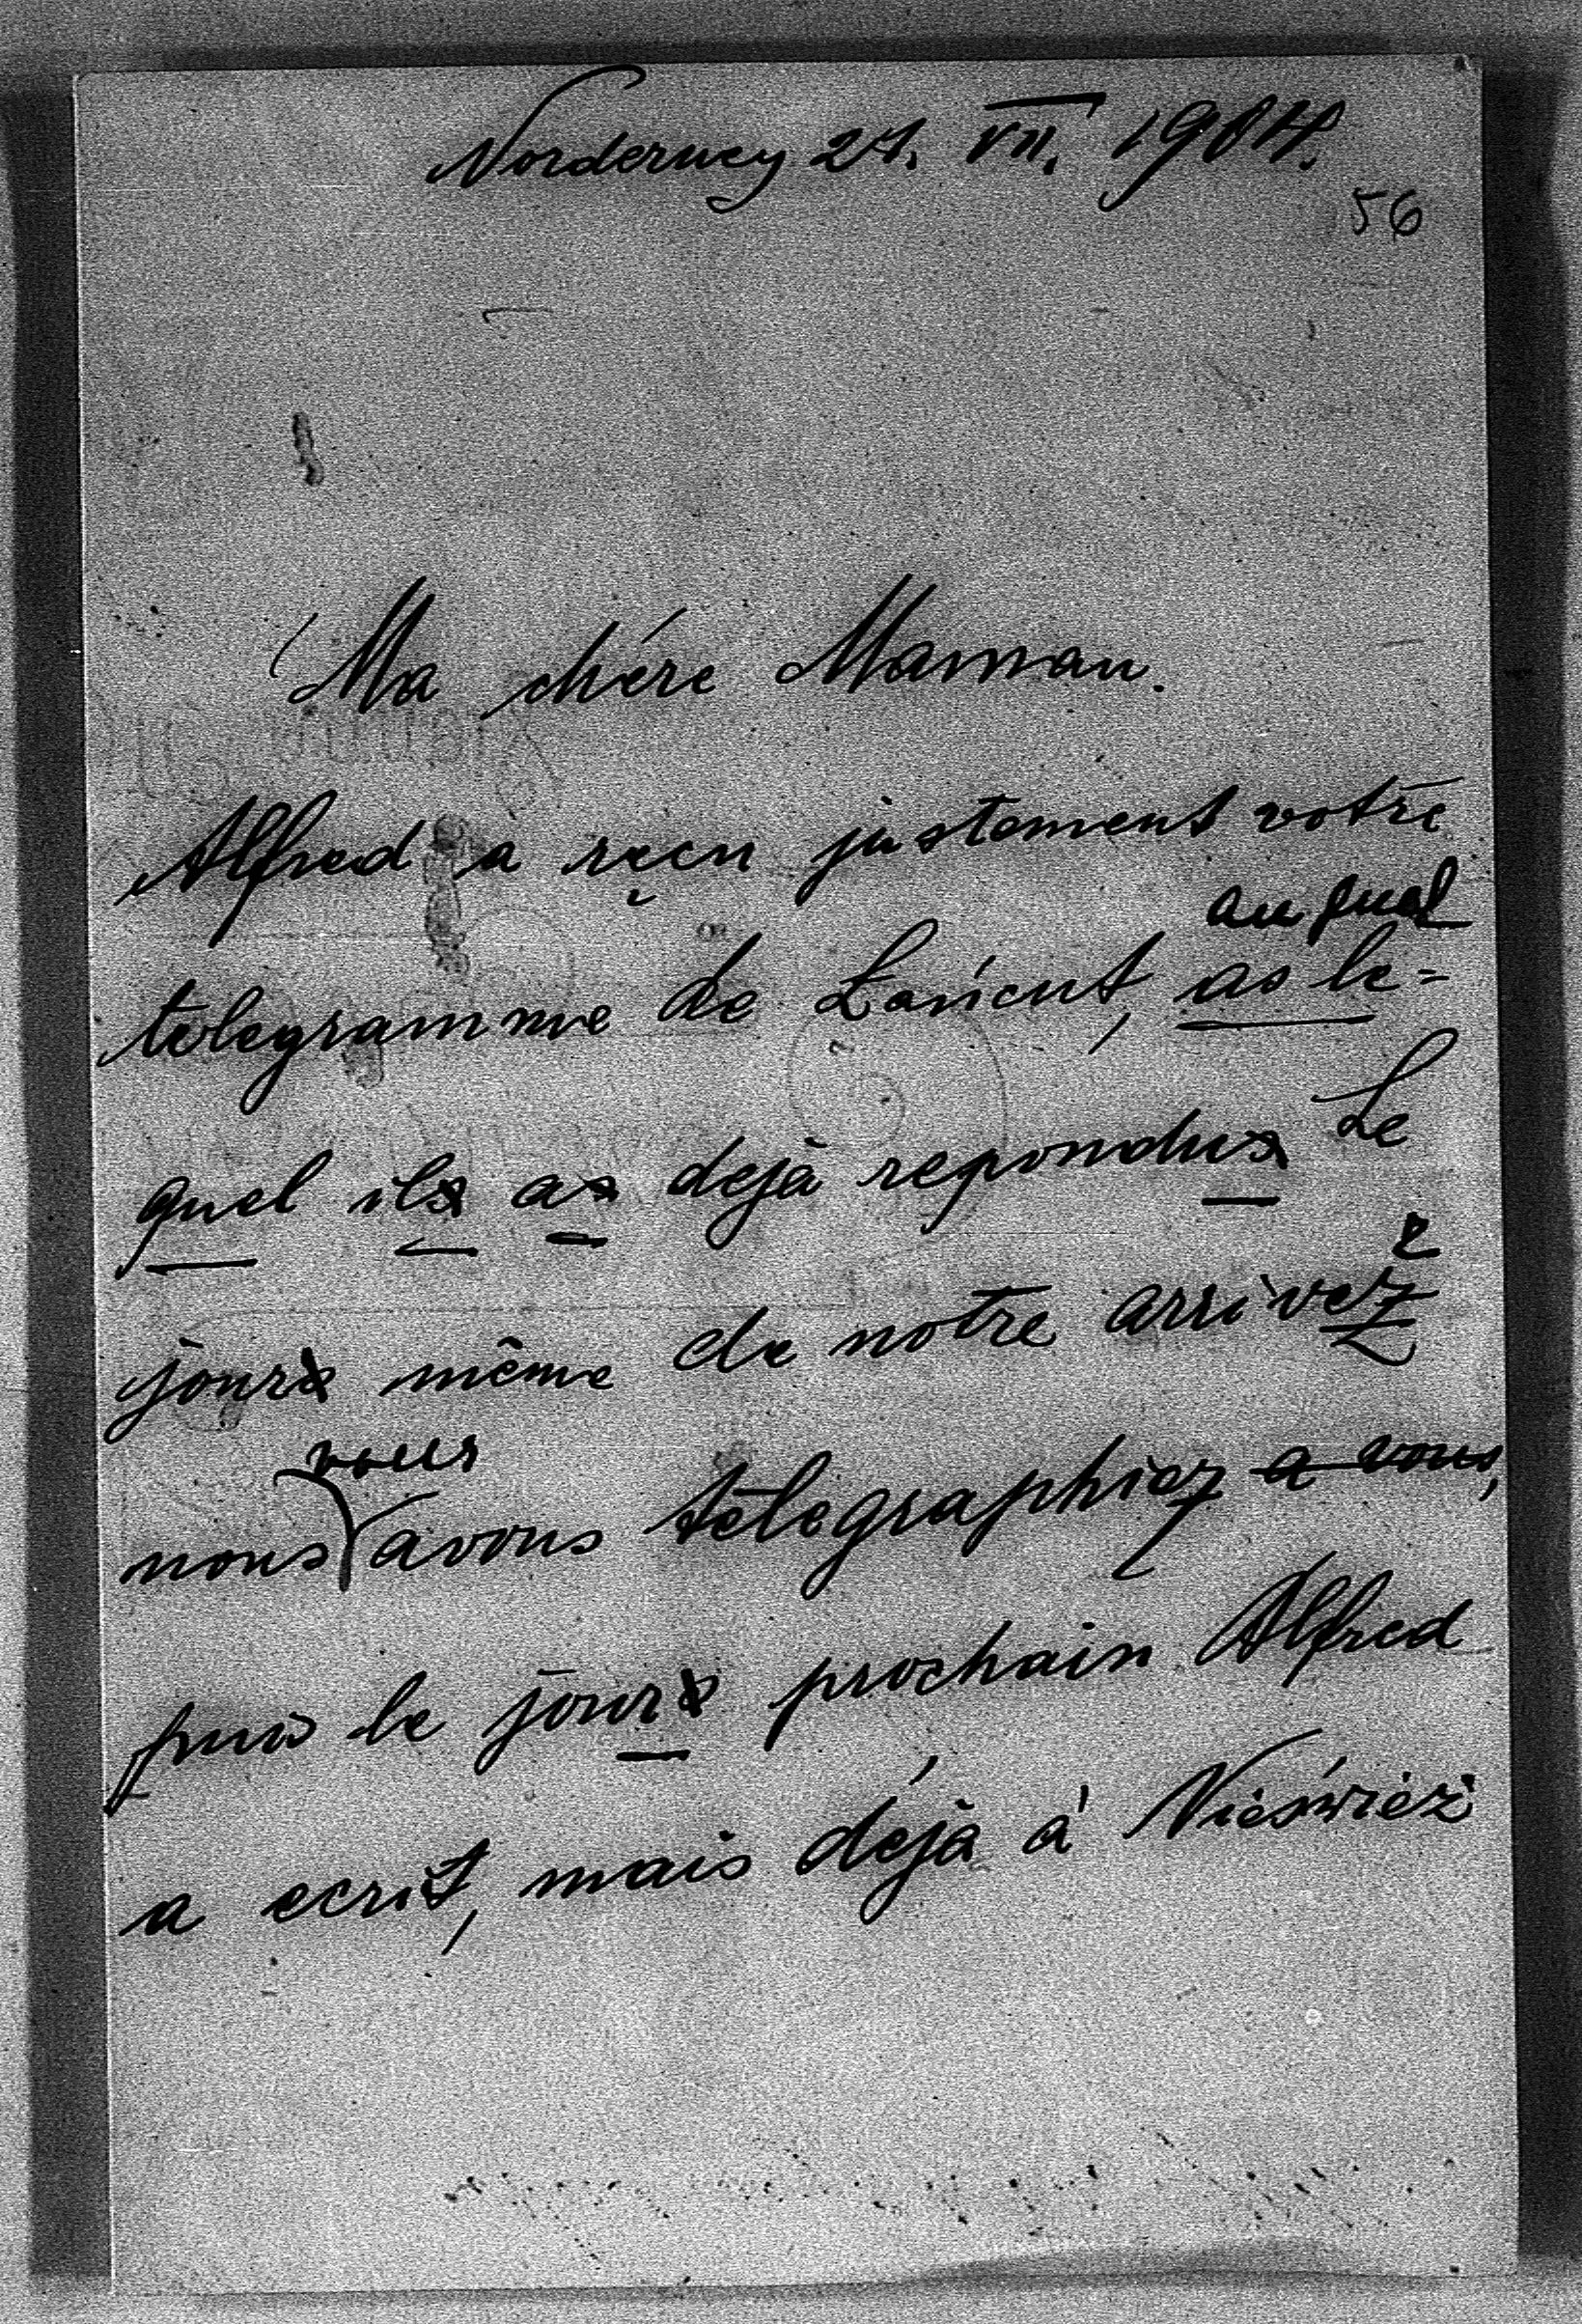 Norderney 21. VII. 1904.
56
Ma chére Maman.
Alfred a reçu justement votre
au quel
telegramme de Łańcut, as le=
quel ils as dejà repondus Le
e
jours même de notre arrivez
vous
nous avons telegraphiez a vous,
puis le jours prochain Alfred
a ecrit, mais déjà á Nieśwież